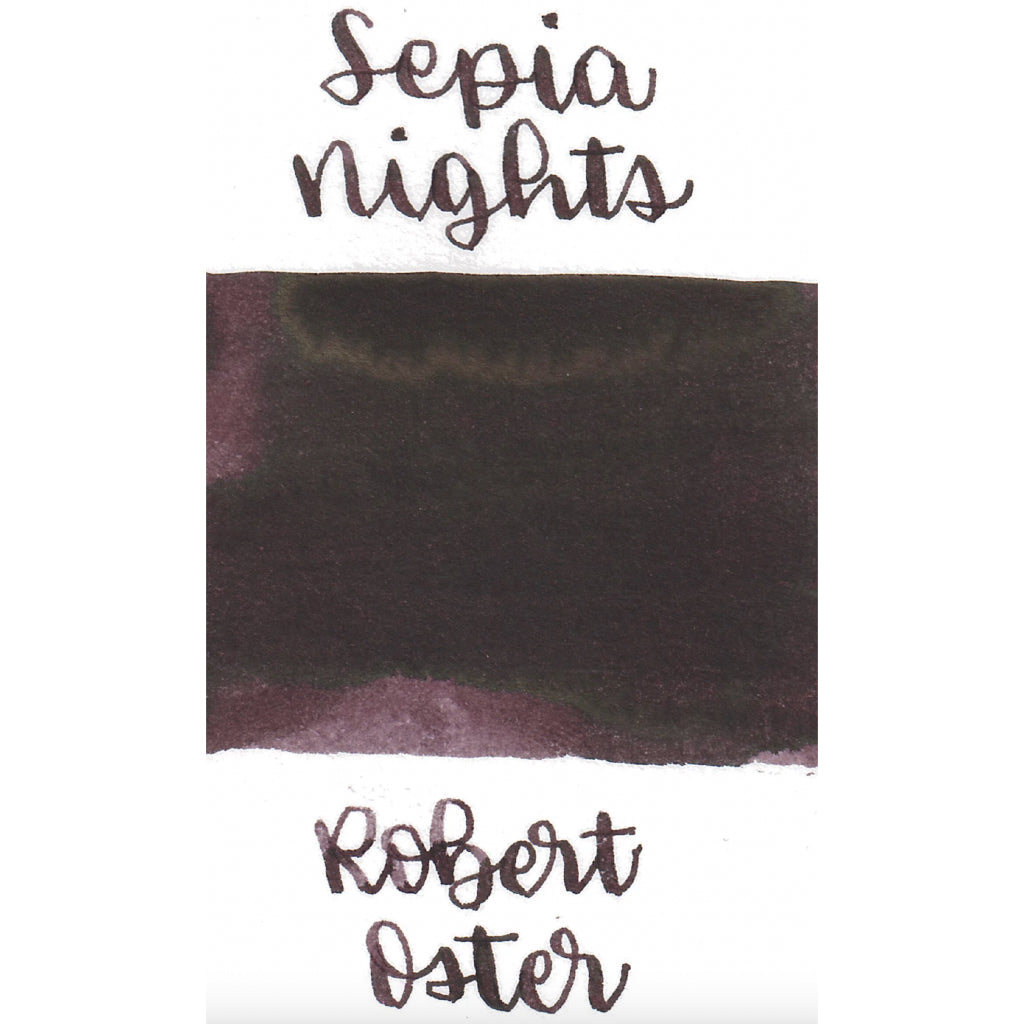 Sepia
nights
Robert
Oster